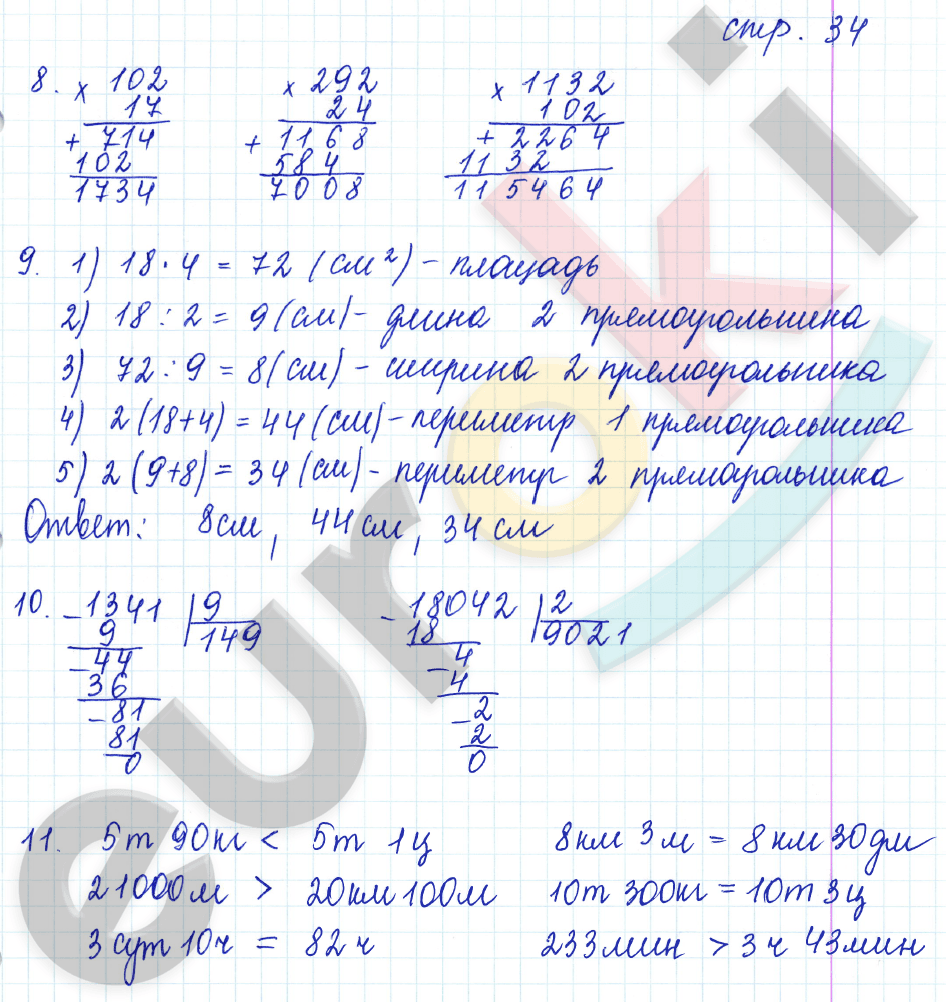 стр. 34
8. × 102 × 292 × 1132
17 24 102
+ 714 + 1168 + 2264
102 584 1132
1734 7008 115464
9. 1) 18 · 4 = 72 (см²) – площадь
2) 18 : 2 = 9 (см) – длина 2 прямоугольника
3) 72 : 9 = 8 (см) – ширина 2 прямоугольника
4) 2 (18+4) = 44 (см) – периметр 1 прямоугольника
5) 2 (9+8) = 34 (см) – периметр 2 прямоугольника
Ответ: 8 см, 44 см, 34 см
10. – 1341 | 9 – 18042 | 2
9 149 18 9021
– 44 – 4
36 4
– 81 – 2
81 2
0 0
11. 5 т 90 кг < 5 т 1 ц 8 км 3 м = 8 км 30 дм
21000 м > 20 км 100 м 10 т 300 кг = 10 т 3 ц
3 сут 10 ч = 82 ч 233 мин > 3 ч 43 мин
euroki